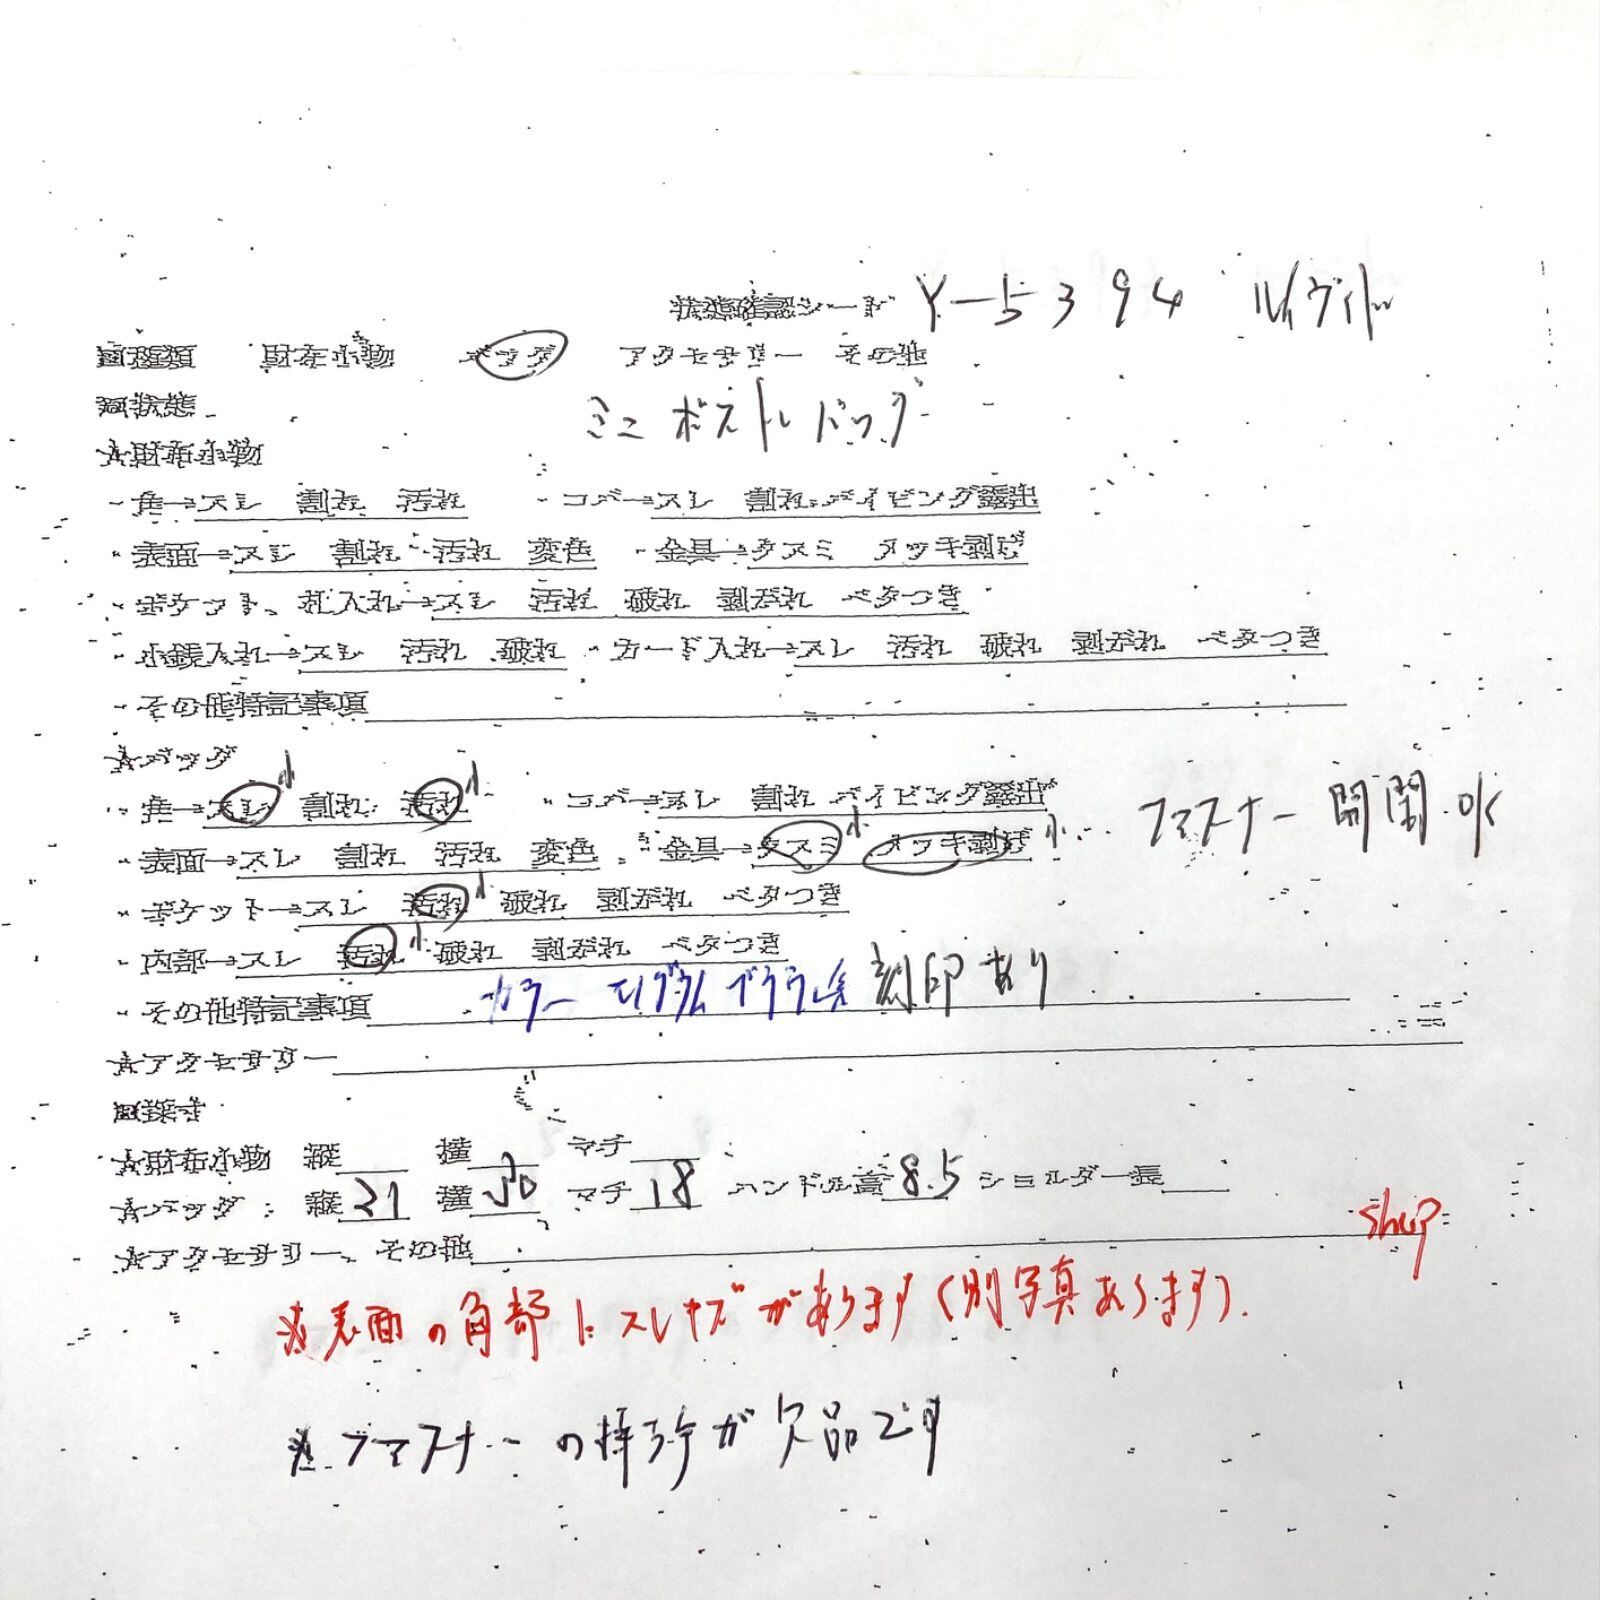 状態確認シート Y-5394 ルイヴィトン
■種類 財布小物 バッグ アクセサリー その他
■状態
ミニボストンバッグ
☆財布小物
・角→スレ 割れ 汚れ ・コバ→スレ 割れ パイピング露出
・表面→スレ 割れ 汚れ 変色 ・金具→クスミ メッキ剥げ
・ポケット、札入れ→スレ 汚れ 破れ 剥がれ ベタつき
・小銭入れ→スレ 汚れ 破れ ・カード入れ→スレ 汚れ 破れ 剥がれ ベタつき
・その他特記事項
☆バッグ
・角→スレ小 割れ 汚れ小 ・コバ→スレ 割れ パイピング露出
・表面→スレ 割れ 汚れ 変色 ・金具→クスミ小 メッキ剥げ小 ファスナー開閉OK
・ポケット→スレ 汚れ小 破れ 剥がれ ベタつき
・内部→スレ 汚れ小 破れ 剥がれ ベタつき
・その他特記事項 カラー モノグラムブラウン系 刻印あり
☆アクセサリー
■採寸
☆財布小物 縦 横 マチ
☆バッグ:縦21 横30 マチ18 ハンドル高8.5 ショルダー長
☆アクセサリー、その他
shop
※表面の角部にスレキズがあります(別写真あります).
※ファスナーの持手が欠品です